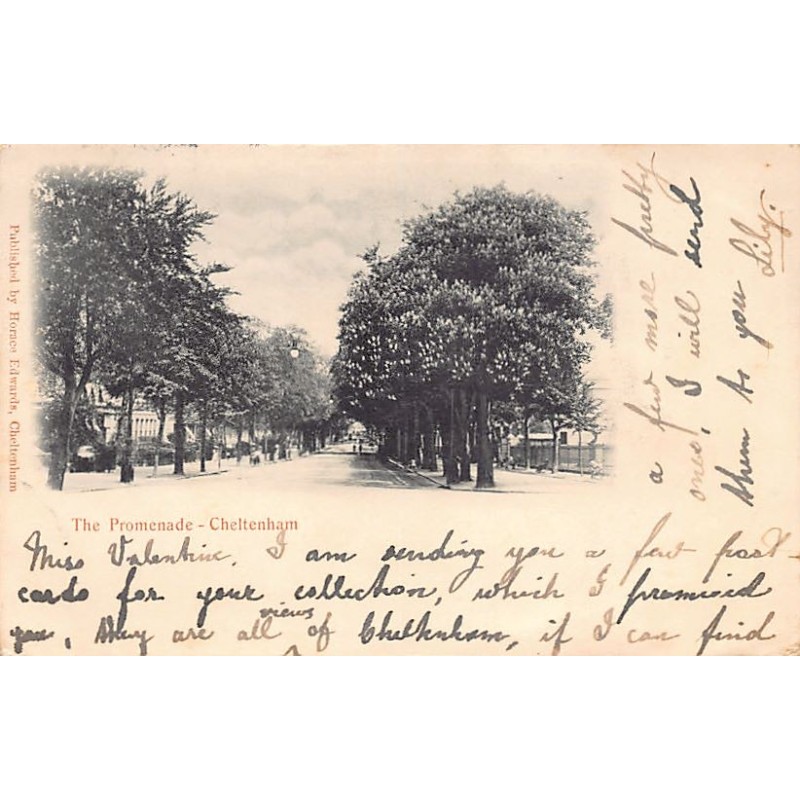 Published by Horace Edwards, Cheltenham
The Promenade - Cheltenham
Miss Valentine. I am sending you a few post-
cards for your collection, which I promised
you, they are all views of Cheltenham, if I can find
a few more pretty
ones, I will send
them to you
Lily.